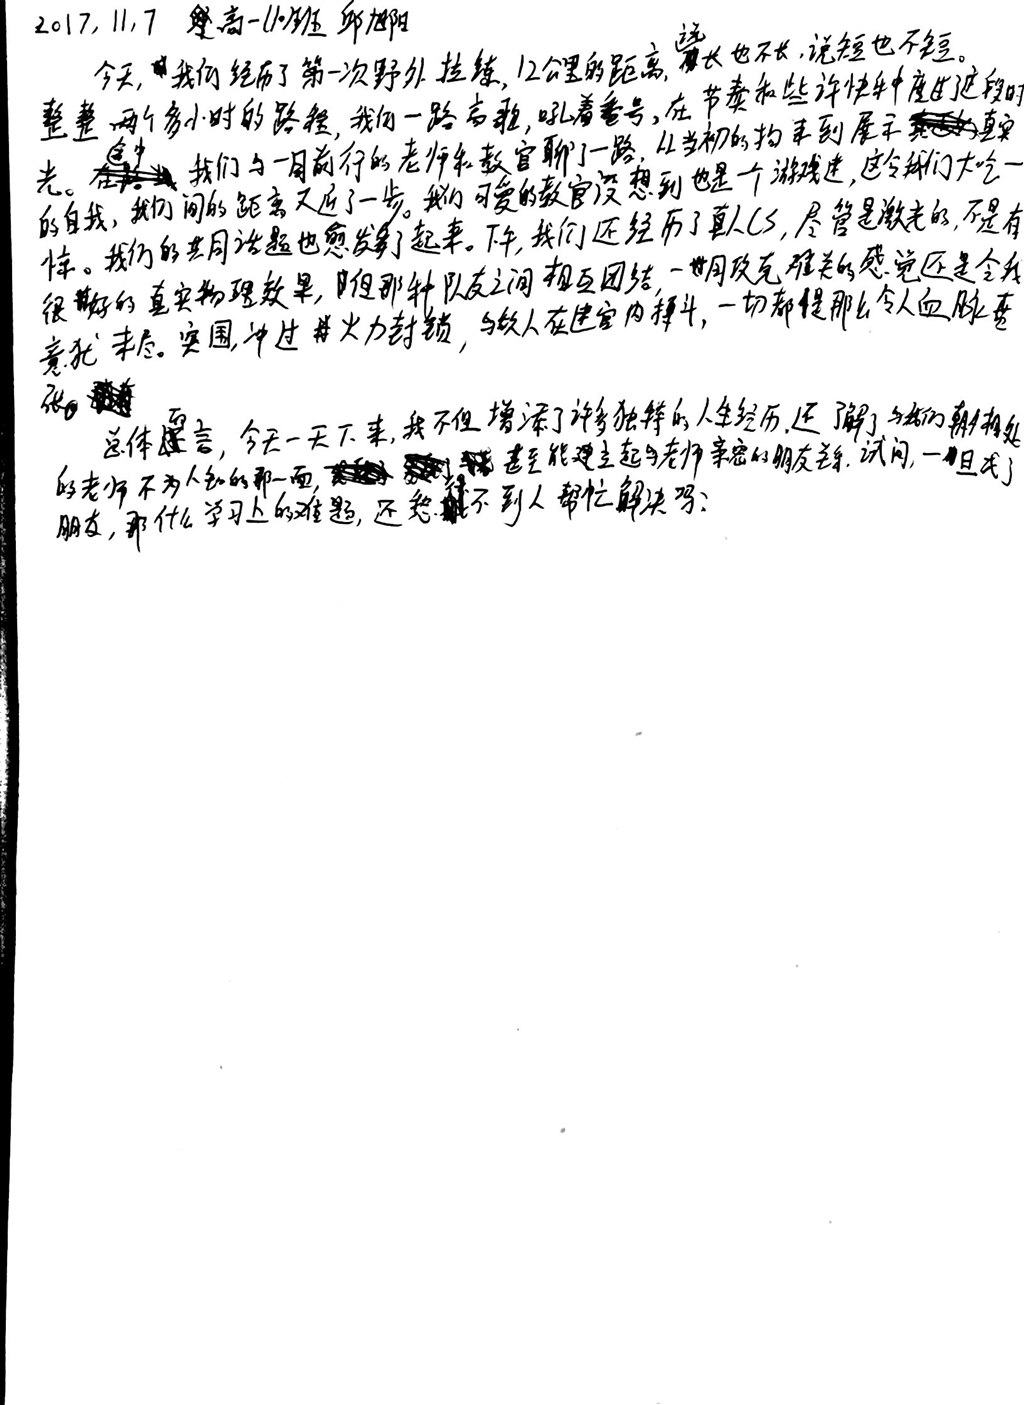 2017.11.7 高一(1)班 邱旭阳
今天,我们经历了第一次野外拉练,12公里的距离,说长也不长,说短也不短。
整整两个多小时的路程,我们一路高歌,吼着番号,在节奏和些许快乐中度过了这段时
光。途中我们与一同前行的老师和教官聊了一路,从当初的拘束到展示真实
的自我,我们间的距离又近了一步。我们可爱的教官没想到也是一个游戏迷,这令我们大吃一
惊。我们的共同话题也愈发多了起来。下午,我们还经历了真人CS,尽管是激光的,不是有
很好的真实物理效果,但那种队友之间相互团结,一同攻克难关的感觉还是令我
意犹未尽。突围,冲过火力封锁,与敌人在建室内搏斗,一切都是那么令人血脉贲
张。
总体而言,今天一天下来,我不但增添了许多独特的人生经历,还了解了与我们朝夕相处
的老师不为人知的那一面,甚至能建立起与老师亲密的朋友关系.试问,一旦成了
朋友,那什么学习上的难题,还愁找不到人帮忙解决吗?